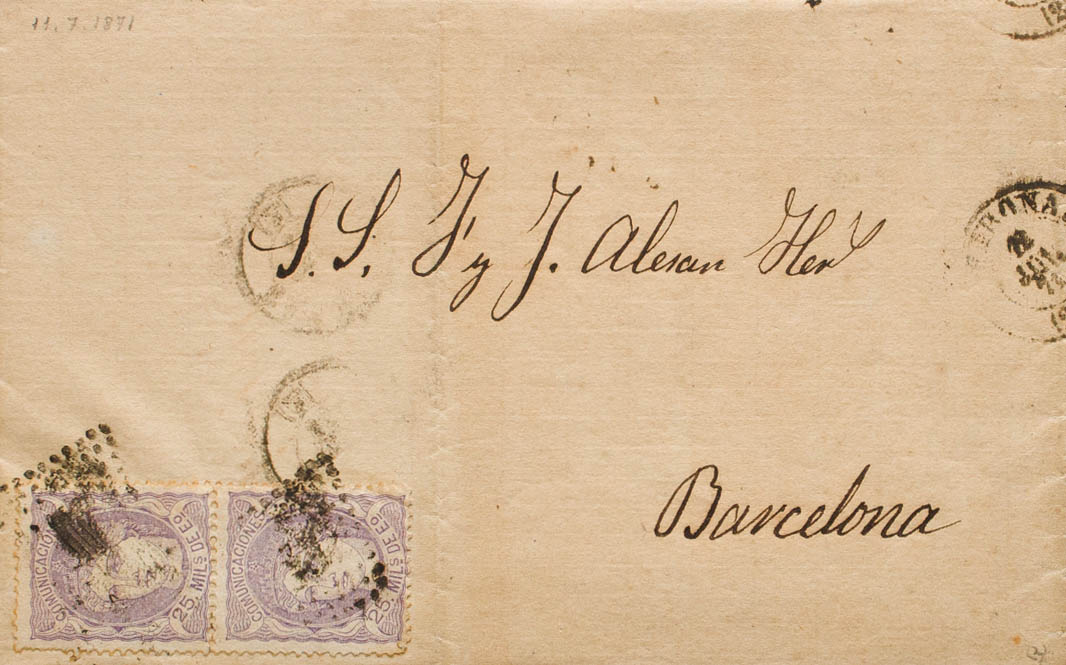 11.7.1871
S. S. F y J. Alesan Her
Barcelona
GERONA
JUL
COMUNICACIONES
25 MILS DE EO
COMUNICACIONES
25 MILS DE EO